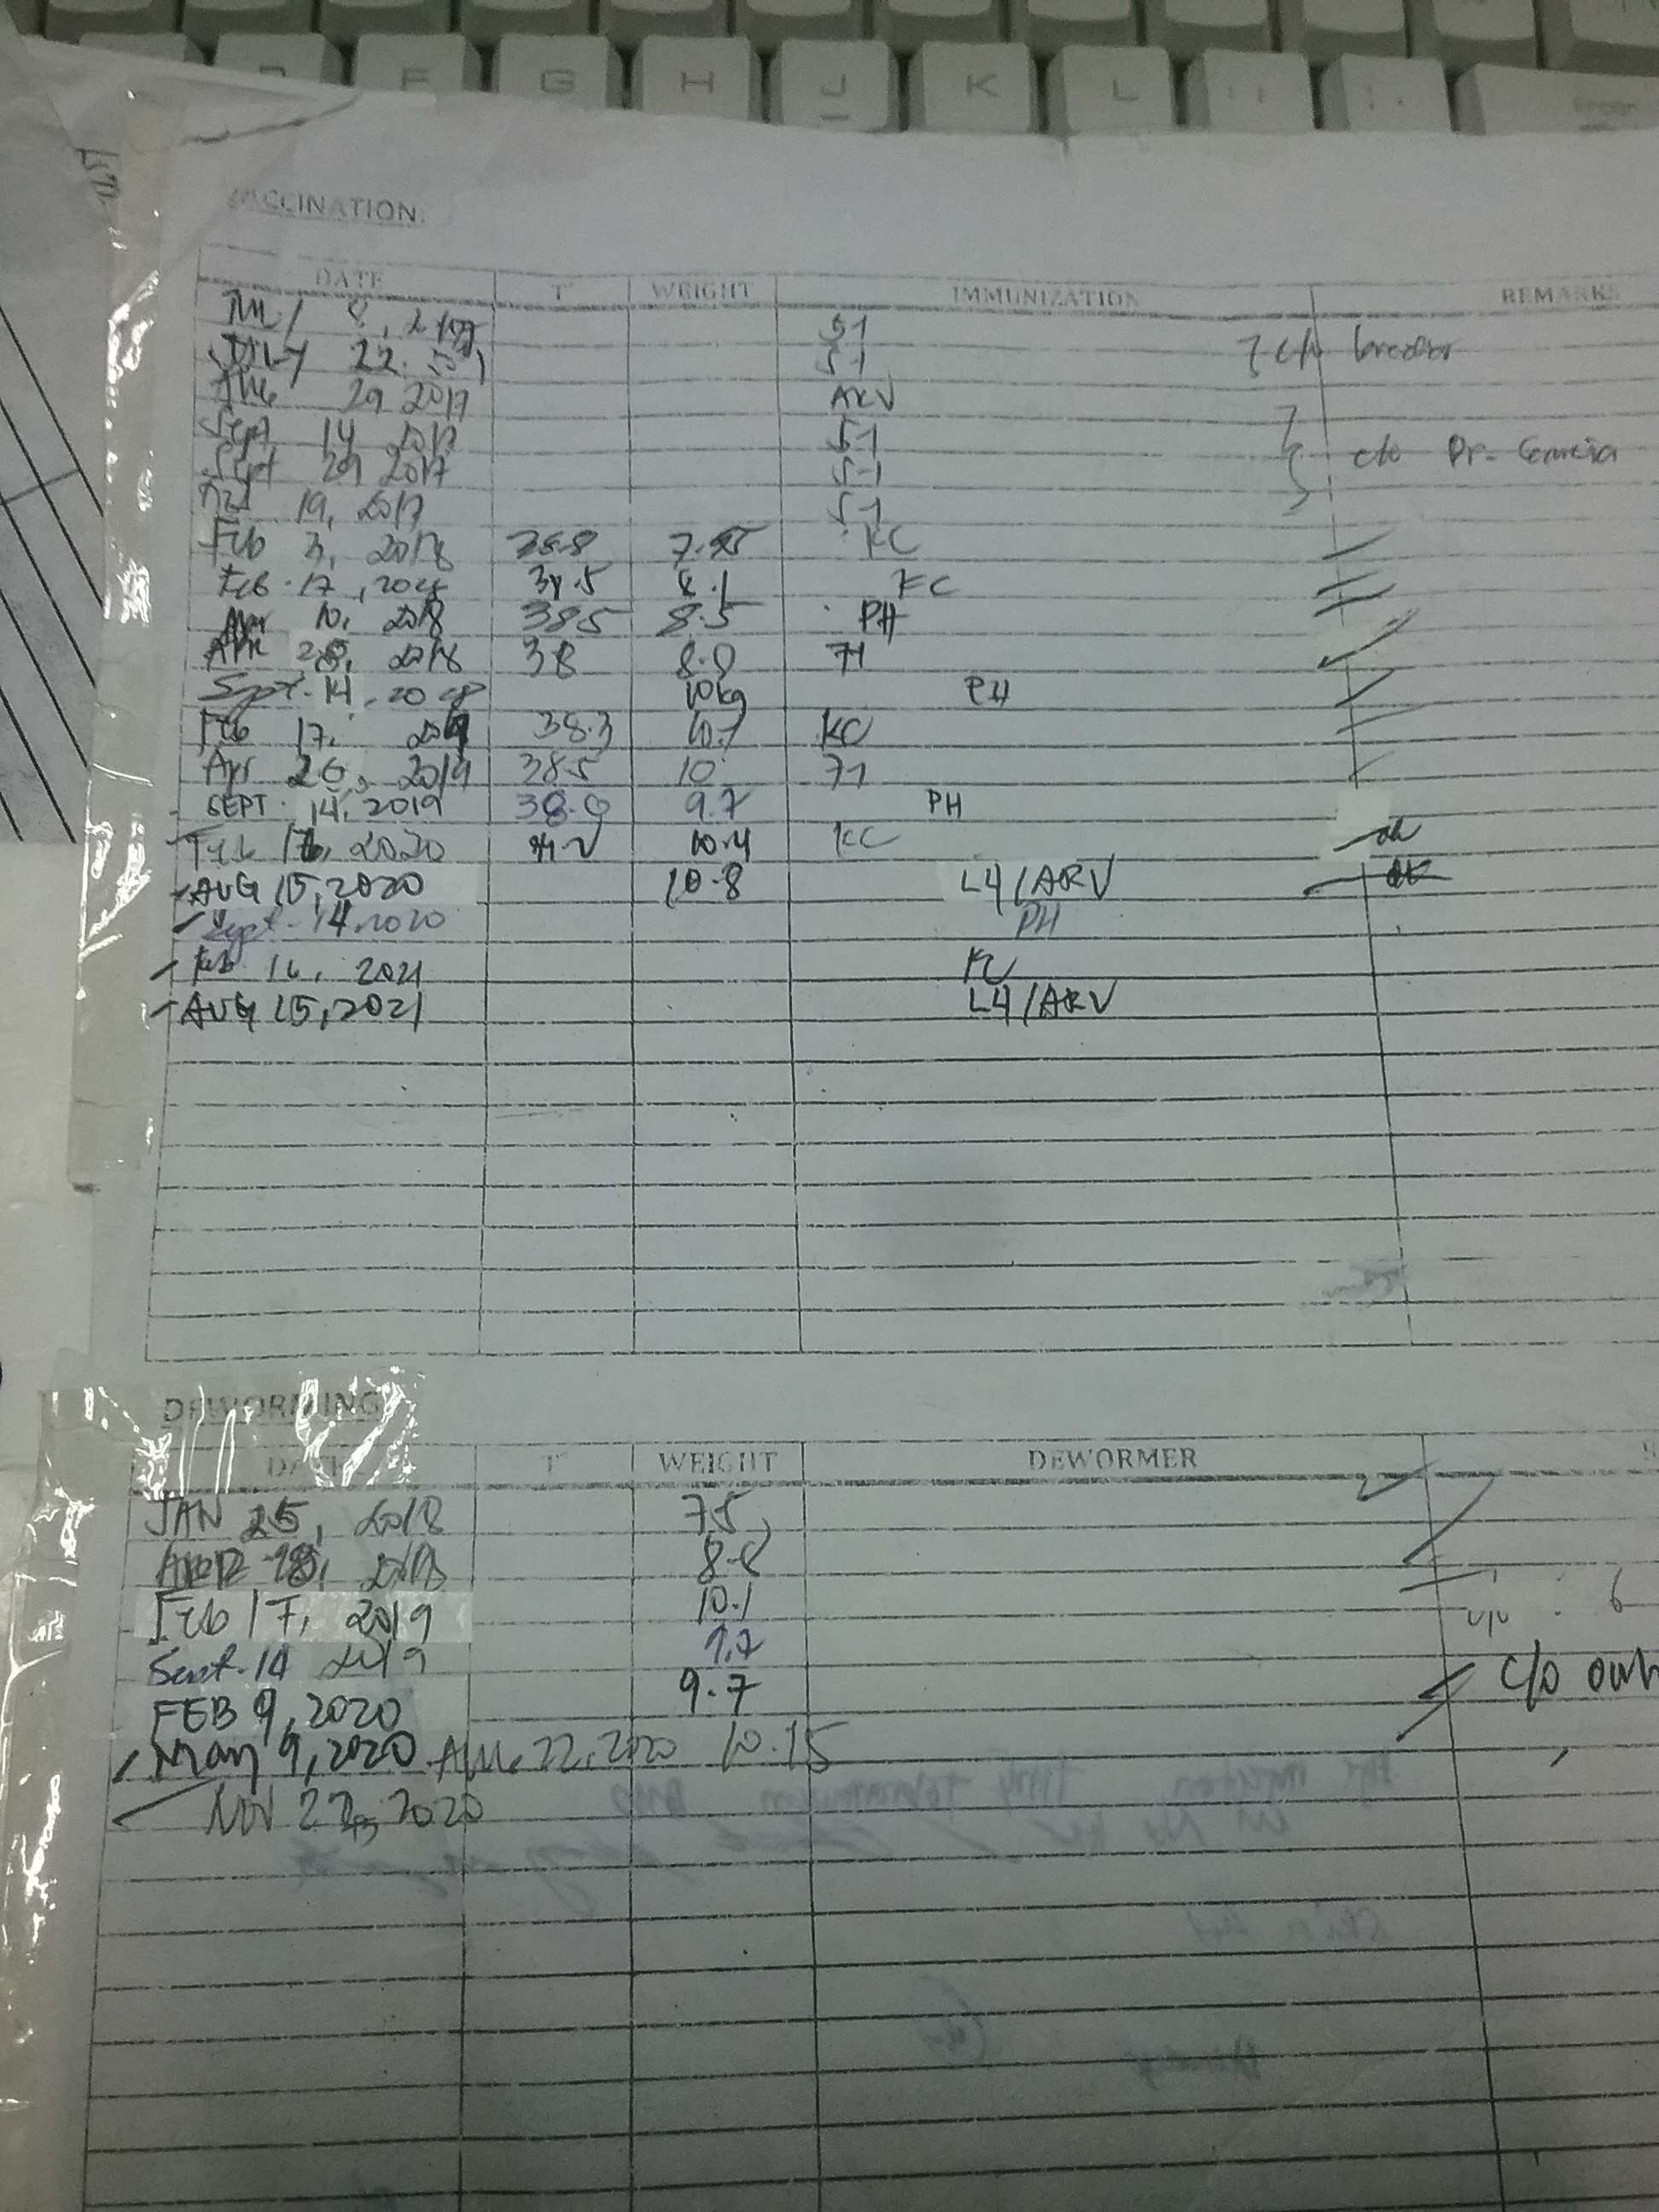 F G H J K L
Enter
VACCINATION:
DATE T° WEIGHT IMMUNIZATION REMARKS
8, 2017 5-1
JULY 22. 5-1 c/o breeder
AUG 29 2017 ARV
Sept 14 2017 5-1
Sept 29 2017 5-1 c/o Dr.
19, 2017 5-1
Feb 3, 2018 38.8 KC
Feb. 17, 2018 8.1 KC
Mar 10, 2018 38.5 8.5 PH
APR 28, 2018 38 8.8 71
Sept. 14, 2018 10kg PH
Feb 17, 2019 38.3 10.1 KC
Apr 26, 2019 38.5 10 71
SEPT. 14, 2019 38.0 9.7 PH
Feb 16, 2020 10.4 KC
AUG 15, 2020 10.8 L4/ARV
Sept. 14, 2020 PH
Feb 16, 2021 KC
AUG 15, 2021 L4/ARV
DEWORMING
DATE T° WEIGHT DEWORMER
JAN 25, 2018 7.5
28, 2018 8.8
Feb 17, 2019 10.1
Sept. 14 2019 9.7
FEB 9, 2020 9.7 c/o own
May 9, 2020 AUG 22, 2020 10.15
NOV 22, 2020